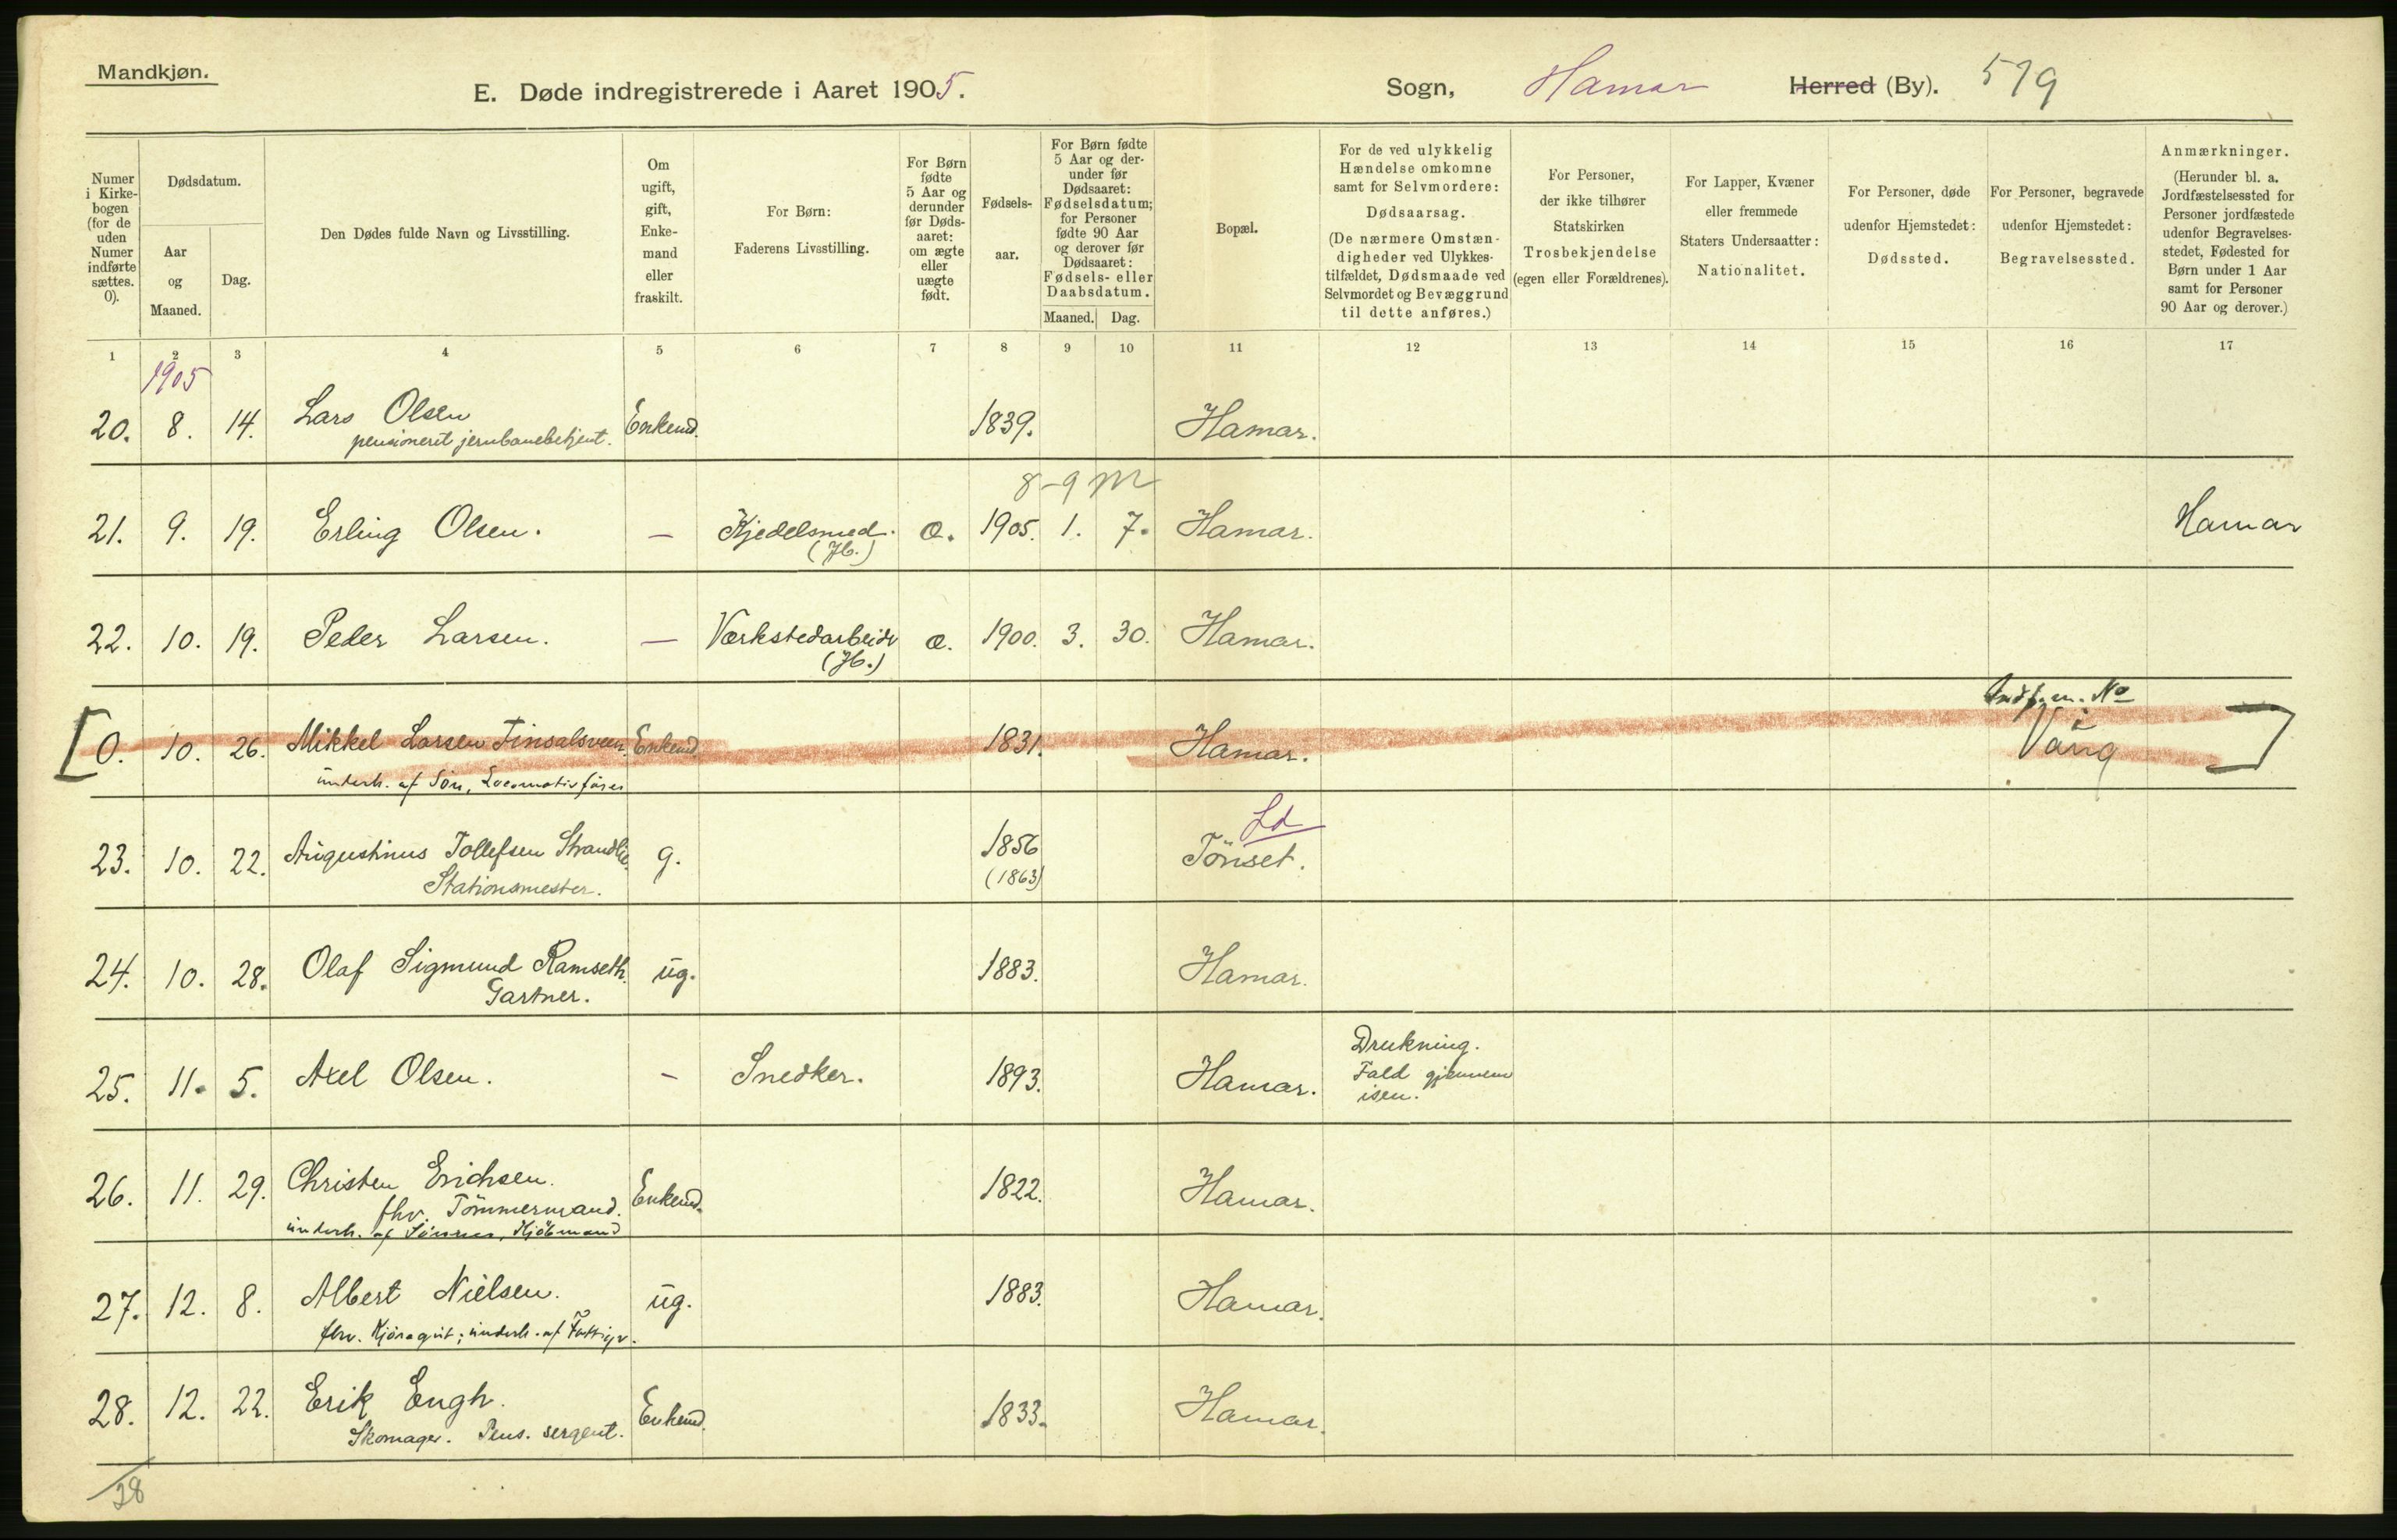 Mandkjøn.
E. Døde indregistrerede i Aaret 1905.
Sogn, Hamar Herred (By). 519
Numer i Kirke-bogen (for de uden Numer indførte sættes. 0).
Dødsdatum.
Aar og Maaned.
Dag.
Den Dødes fulde Navn og Livsstilling.
Om ugift, gift, Enke-mand eller fraskilt.
For Børn: Faderens Livsstilling.
For Børn fødte 5 Aar og derunder før Døds-aaret: om ægte eller uægte født.
Fødsels-aar.
For Børn fødte 5 Aar og der-under før Dødsaaret: Fødselsdatum; for Personer fødte 90 Aar og derover før Dødsaaret: Fødsels- eller Daabsdatum.
Maaned. Dag.
Bopæl.
For de ved ulykkelig Hændelse omkomne samt for Selvmordere: Dødsaarsag. (De nærmere Omstæn-digheder ved Ulykkes-tilfældet, Dødsmaade ved Selvmordet og Bevæggrund til dette anføres.)
For Personer, der ikke tilhører Statskirken Trosbekjendelse (egen eller Forældrenes).
For Lapper, Kvæner eller fremmede Staters Undersaatter: Nationalitet.
For Personer, døde udenfor Hjemstedet: Dødssted.
For Personer, begravede udenfor Hjemstedet: Begravelsessted.
Anmærkninger. (Herunder bl. a. Jordfæstelsessted for Personer jordfæstede udenfor Begravelses-stedet, Fødested for Børn under 1 Aar samt for Personer 90 Aar og derover.)
1 2 3 4 5 6 7 8 9 10 11 12 13 14 15 16 17
1905
20. 8. 14. Lars Olsen Enkemd. 1839. Hamar.
pensioneret jernbanebetjent.
8-9 M
21. 9. 19. Erling Olsen. — Kjedelsmed. æ. 1905. 1. 7. Hamar. Hamar
(Jb.)
22. 10. 19. Peder Larsen. — Værkstedarbeidr æ. 1900. 3. 30. Hamar.
(Jb.)
[0. 10. 26. Mikkel Larsen Finsalsveen. Enkemd. 1831. Hamar. Vang]
underh. af Søn, Locomotivfører
Ld
23. 10. 22. Augustinus Tollefsen Strandlie g. 1856 Tönset.
Stationsmester. (1863)
24. 10. 28. Olaf Sigmund Ramseth. ug. 1883. Hamar.
Gartner.
25. 11. 5. Axel Olsen. - Snedker. 1893. Hamar. Drukning.
Fald gjennem
isen.
26. 11. 29. Christen Erichsen. Enkemd. 1822. Hamar.
fhv. Tömmermand.
underh. af Sönner, Kjöbmand
27. 12. 8. Albert Nielsen. ug. 1883. Hamar.
fhv. Kjöregut; underh. af Fattigv.
28. 12. 22. Erik Engh. Enkemd. 1833. Hamar.
Skomager. Pens. sergent.
28